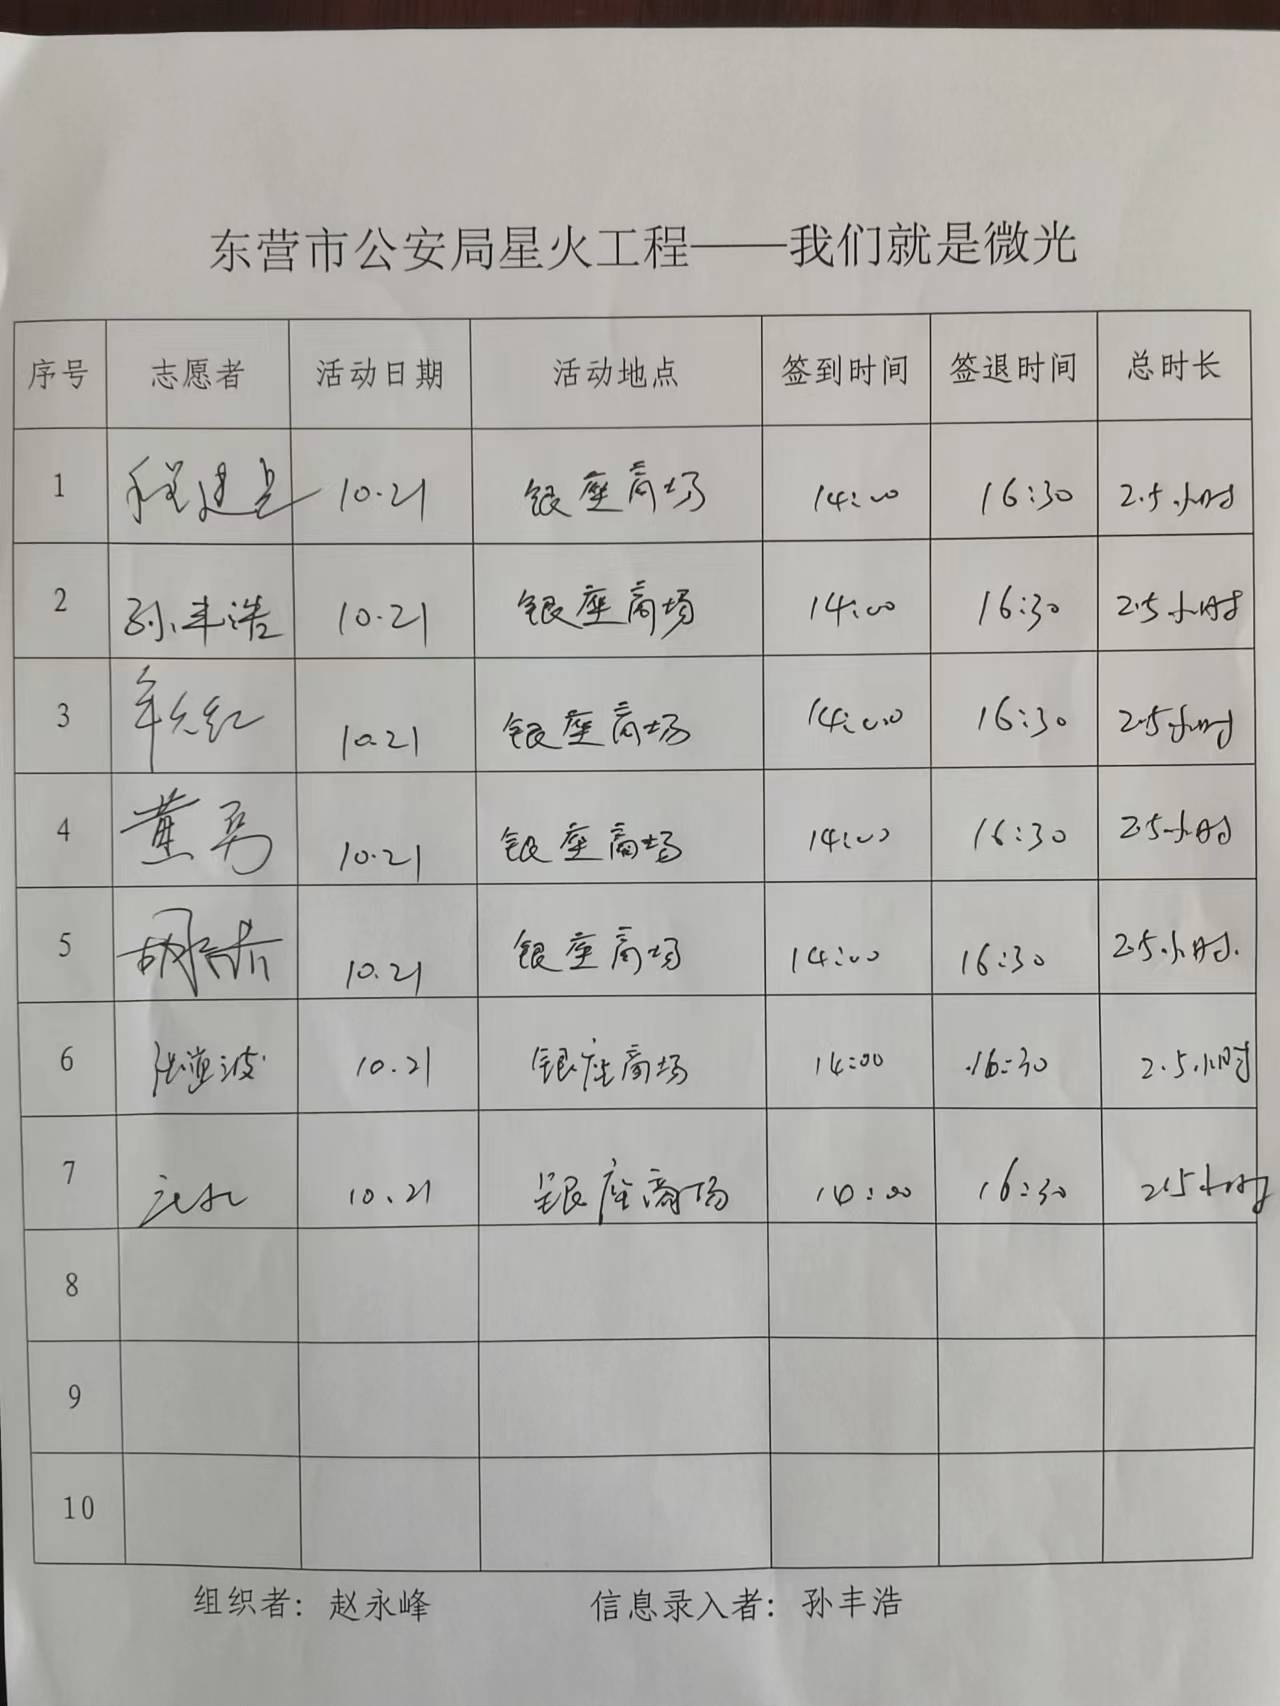 东营市公安局星火工程——我们就是微光
序号 志愿者 活动日期 活动地点 签到时间 签退时间 总时长
1 10.21 银座商场 14:00 16:30 2.5小时
2 孙丰浩 10.21 银座商场 14:00 16:30 2.5小时
3 10.21 银座商场 14:00 16:30 2.5小时
4 董勇 10.21 银座商场 14:00 16:30 2.5小时
5 10.21 银座商场 14:00 16:30 2.5小时.
6 10.21 银座商场 14:00 16:30 2.5小时
7 10.21 银座商场 14:00 16:30 2.5小时
8
9
10
组织者：赵永峰 信息录入者：孙丰浩